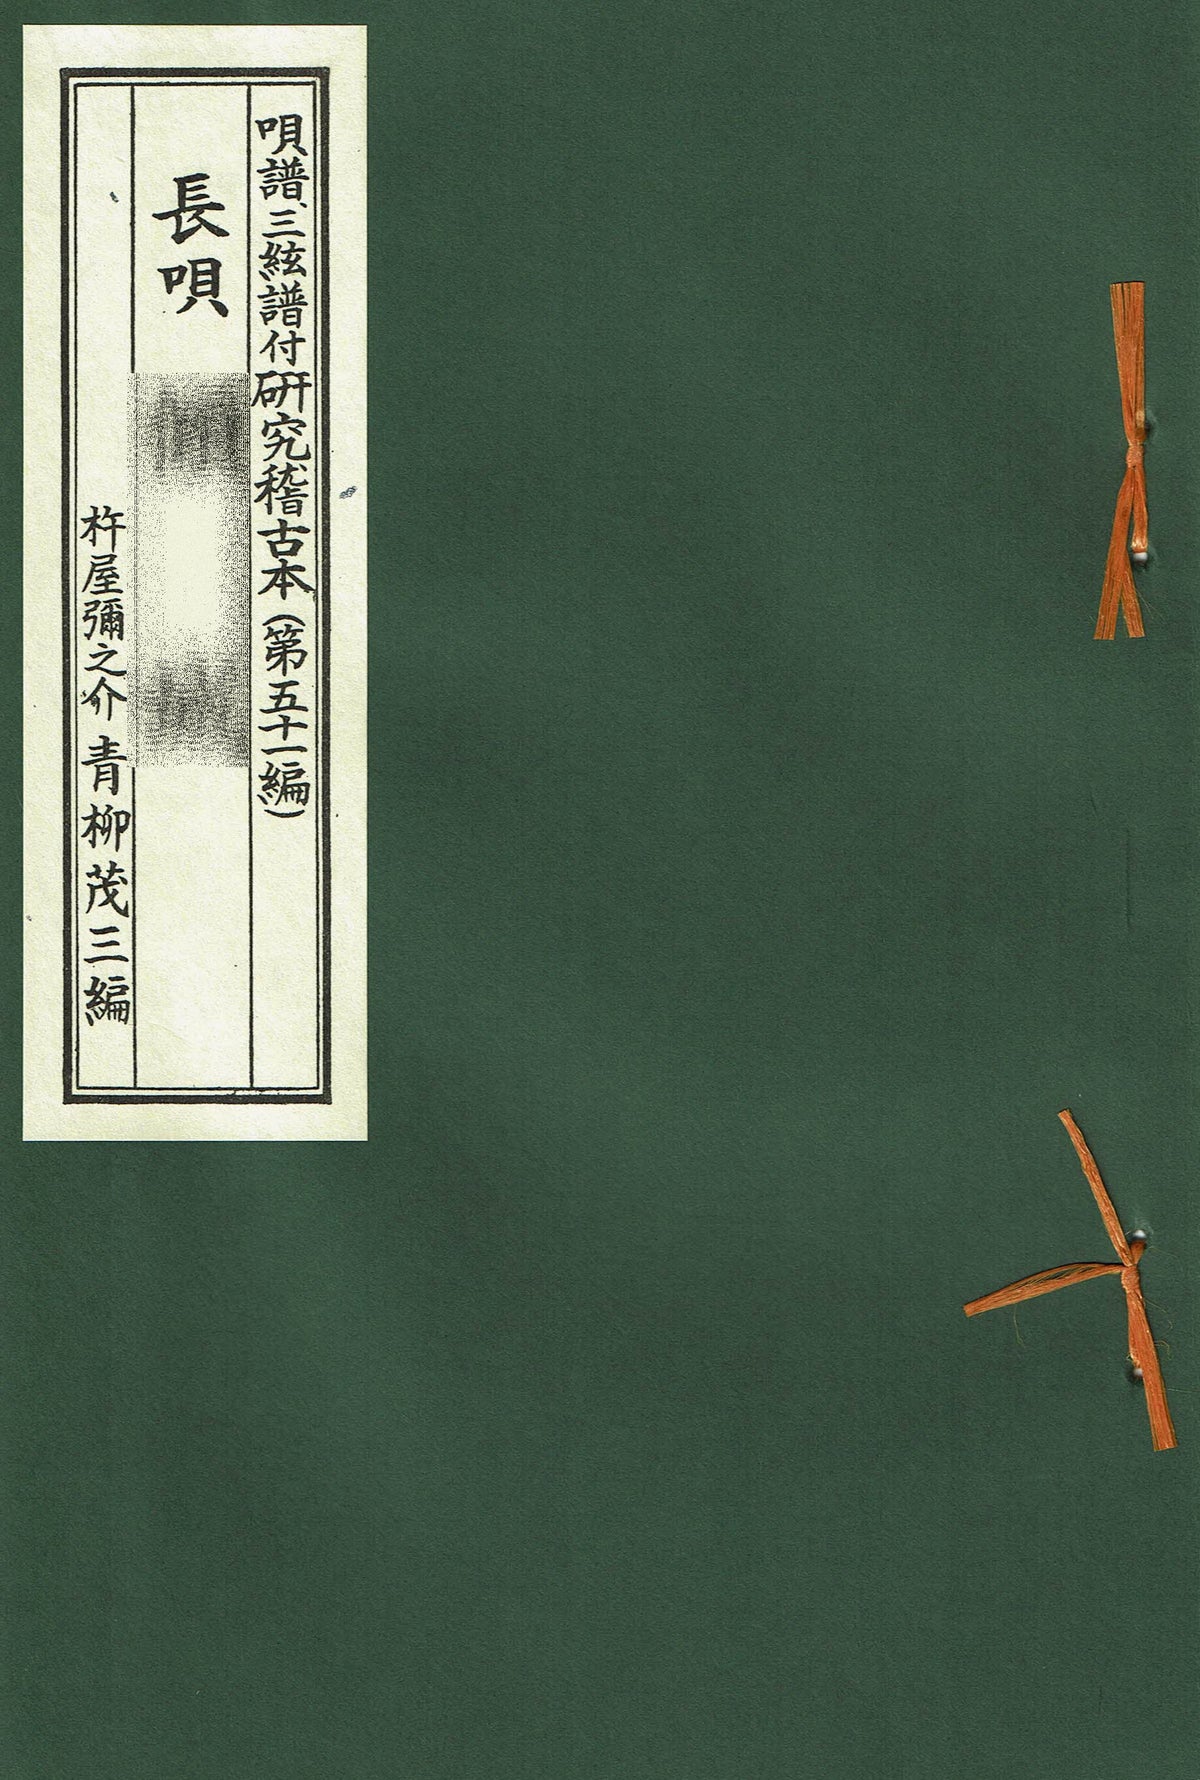 唄譜、三絃譜付研究稽古本（第五十一編）
長唄
杵屋彌之介 青柳茂三編